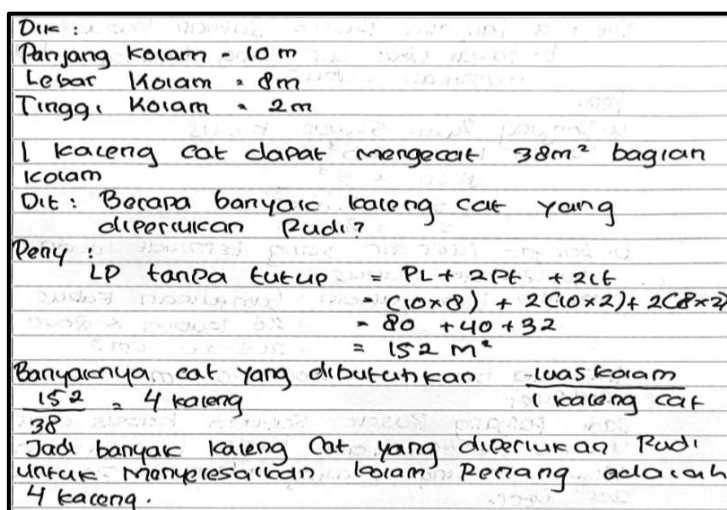 Dik :
Panjang Kolam = 10 m
Lebar Kolam = 8m
Tinggi Kolam = 2m
1 kaleng cat dapat mengecat 38m² bagian
kolam
Dit : Berapa banyak kaleng cat yang
diperlukan Rudi?
Peny :
LP tanpa tutup = PL + 2Pt + 2lt
= (10×8) + 2(10×2) + 2(8×2)
= 80 + 40 + 32
= 152 M²
Banyaknya cat yang dibutuhkan = luas kolam / 1 kaleng cat
152 / 38 = 4 kaleng
Jadi banyak kaleng Cat yang diperlukan Rudi
untuk Menyelesaikan kolam Renang adalah
4 kaleng.